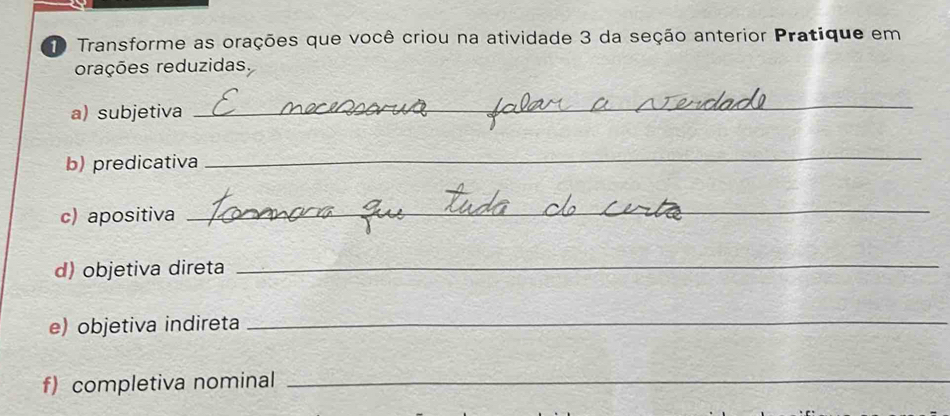 1 Transforme as orações que você criou na atividade 3 da seção anterior Pratique em
orações reduzidas.
a) subjetiva É necessario falar a verdade
b) predicativa
c) apositiva Tommara que tuda do certo
d) objetiva direta
e) objetiva indireta
f) completiva nominal